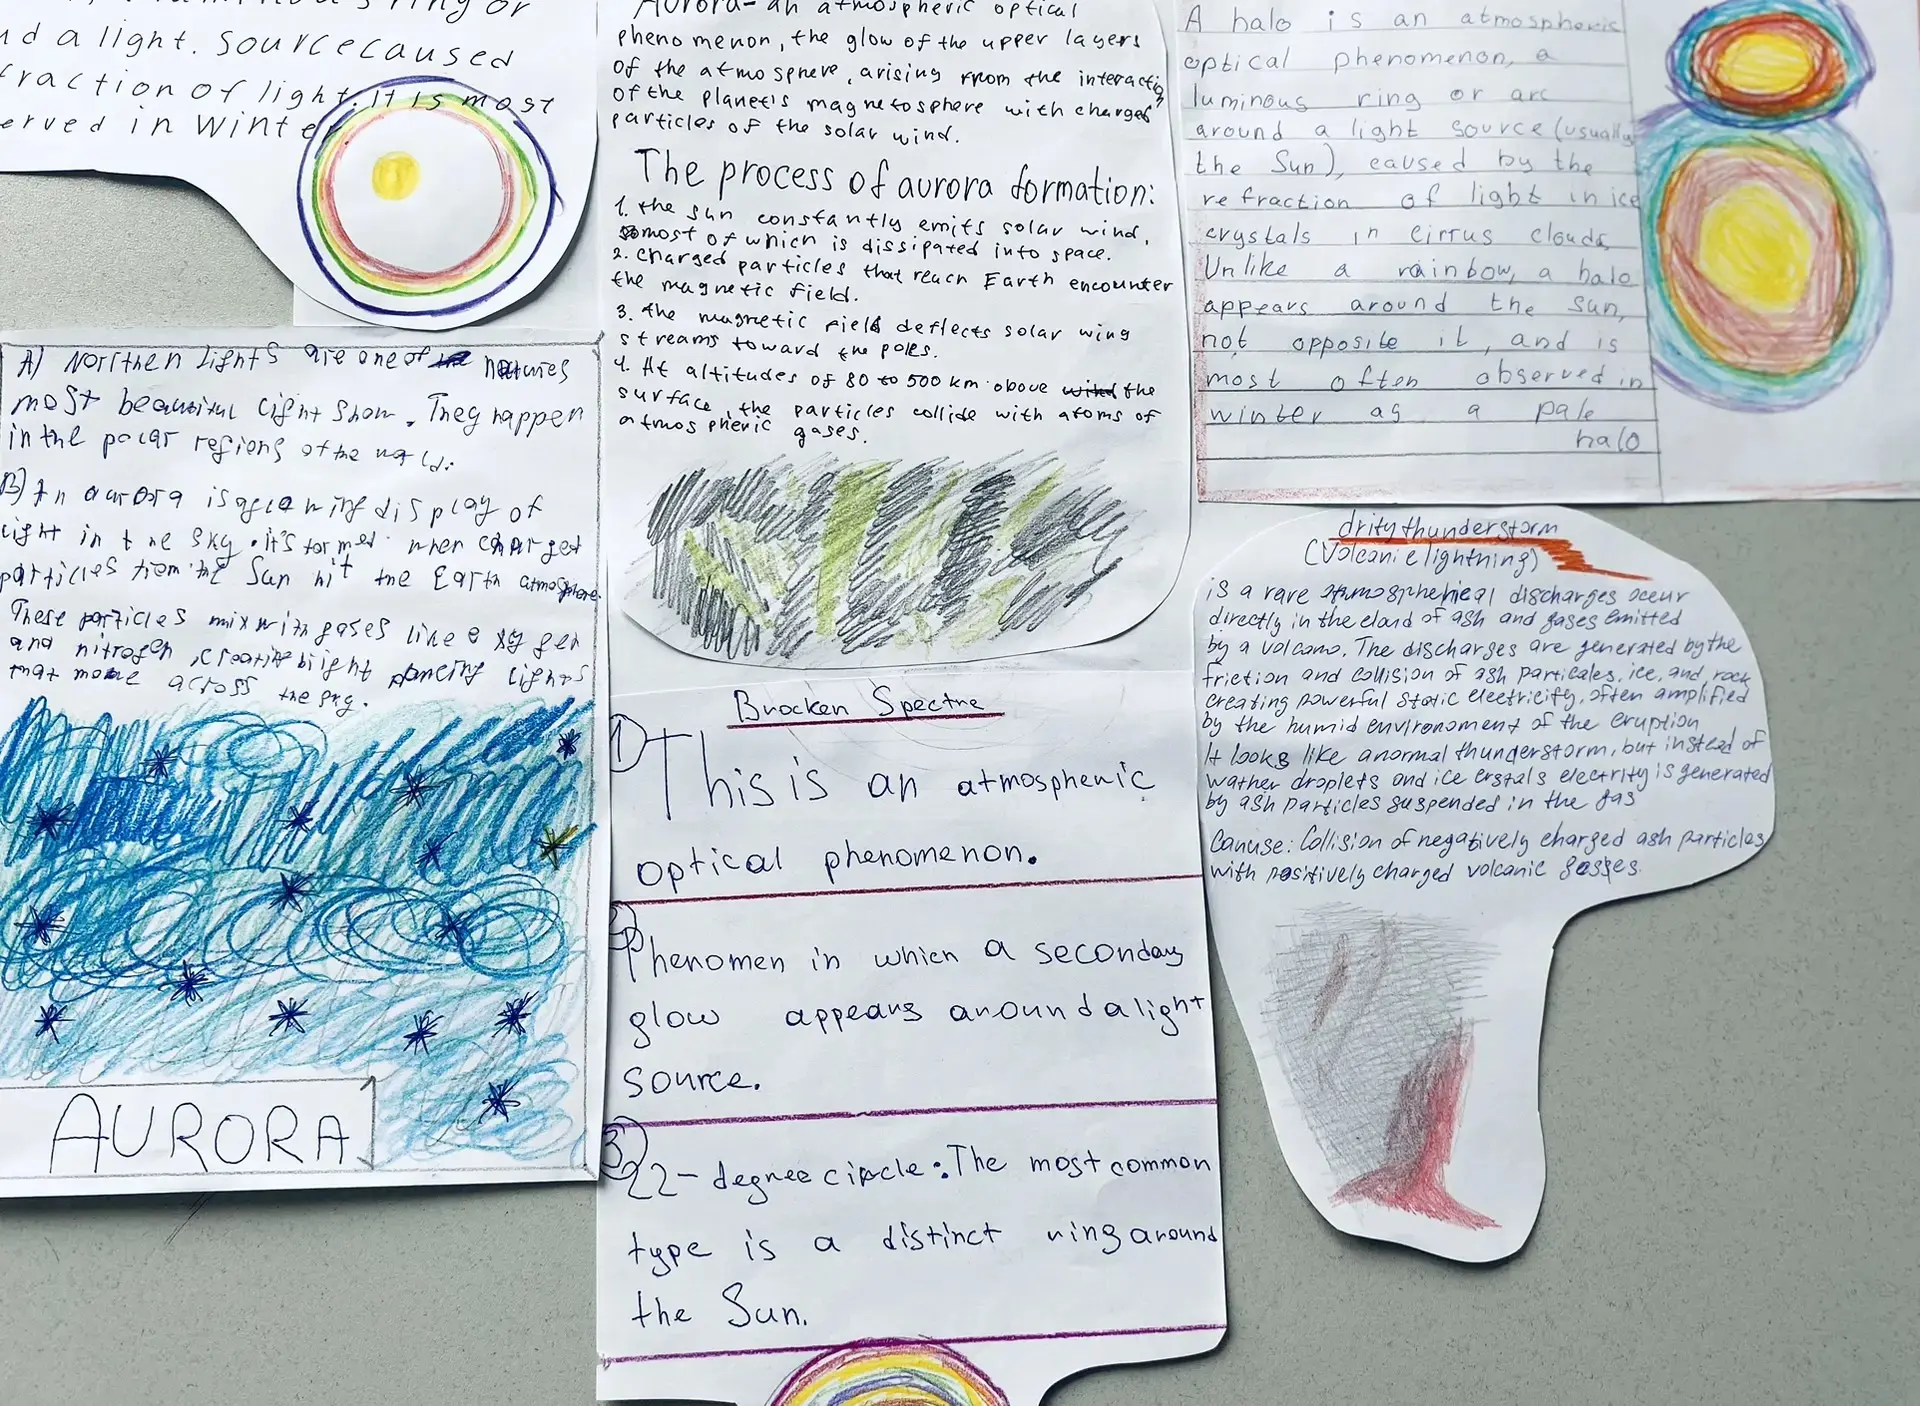 nd a light. Source caused
fraction of light. It is most
erved in winter
A) Northen lights are one of natures
most beautiful light show. They happen
in the polar regions of the world.
B) An aurora is a glowing display of
light in the sky. it's formed when charged
particles from the Sun hit the Earth atmosphere.
These particles mix with gases like oxygen
and nitrogen, creating bright dancing lights
that move across the sky.
AURORA
Aurora - an atmospheric optical
phenomenon, the glow of the upper layers
of the atmosphere, arising from the interacti
of the planet's magnetosphere with charged
particles of the solar wind.
The process of aurora formation:
1. the sun constantly emits solar wind,
most of which is dissipated into space.
2. charged particles that reach Earth encounter
the magnetic field.
3. the magnetic field deflects solar wing
streams toward the poles.
4. At altitudes of 80 to 500 km above the
surface, the particles collide with atoms of
atmospheric gases.
Brocken Spectre
1) This is an atmospheric
optical phenomenon.
2) Phenomen in which a secondary
glow appears around a light
source.
3) 22-degree circle: The most common
type is a distinct ring around
the Sun.
A halo is an atmospheric
optical phenomenon, a
luminous ring or arc
around a light source (usually
the Sun), caused by the
refraction of light in ice
crystals in cirrus clouds,
Unlike a rainbow, a halo
appears around the sun,
not opposite it, and is
most often observed in
winter as a pale
halo
drity thunderstorm
(Volcanic lightning)
is a rare atmospherical discharges occur
directly in the cloud of ash and gases emitted
by a volcano. The discharges are generated by the
friction and collision of ash particales, ice, and, rock
creating powerful static electricity, often amplified
by the humid environoment of the eruption
It looks like a normal thunderstorm, but instead of
wather droplets and ice crstals electrity is generated
by ash particles suspended in the gas
Canuse: Collision of negatively charged ash particles
with positively charged volcanic gasses.